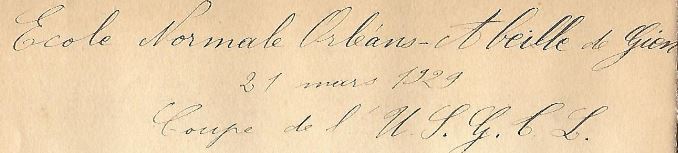 Ecole Normale Orléans - Abeille de Gien
21 mars 1929
Coupe de l'U. S. G. C. L.